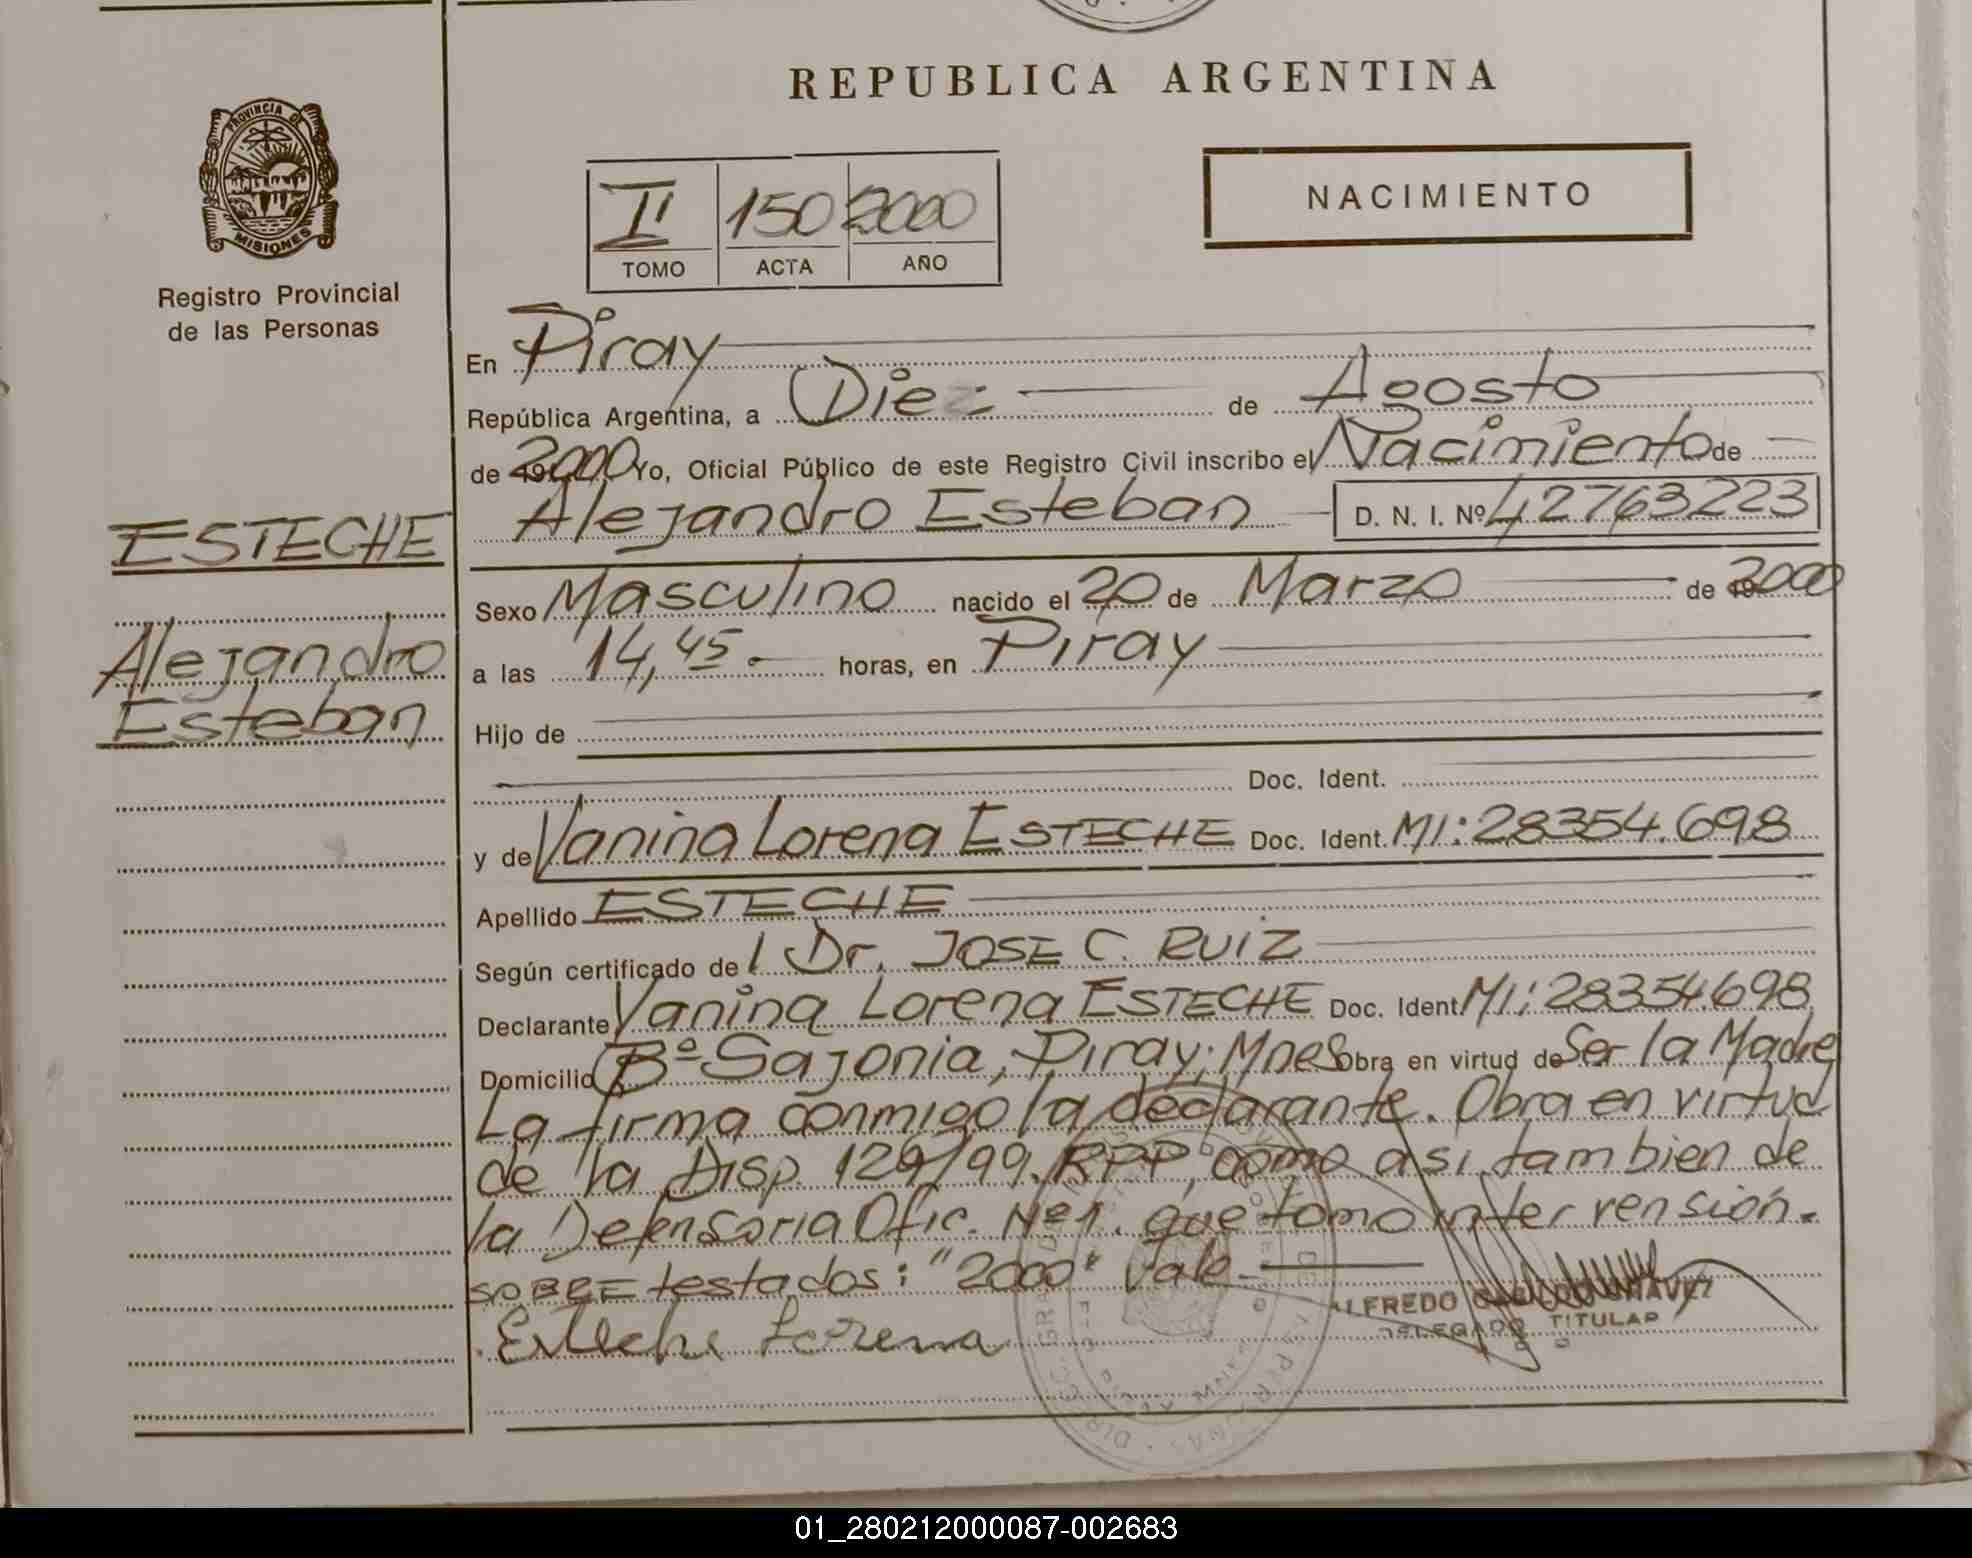 REPUBLICA ARGENTINA
PROVINCIA DE
MISIONES
Registro Provincial
de las Personas
II 150 2000
TOMO ACTA AÑO
NACIMIENTO
En Piray
República Argentina, a Diez de Agosto
de 2000 Yo, Oficial Público de este Registro Civil inscribo el Nacimiento de
Alejandro Esteban D. N. I. Nº 42763223
ESTECHE
Alejandro
Esteban
Sexo Masculino nacido el 20 de Marzo de 2000
a las 14,45.- horas, en Piray
Hijo de
Doc. Ident.
y de Vanina Lorena ESTECHE Doc. Ident. MI: 28354.698
Apellido ESTECHE
Según certificado de l Dr. JOSE C. RUIZ
Declarante Vanina Lorena ESTECHE Doc. Ident MI: 28354.698
Domicilio Bº Sajonia, Piray; Mnes Obra en virtud de Ser la Madre
La firma conmigo la declarante. Obra en virtud
de la Disp. 129/99. RPP, como asi tambien de
la Defensoria Ofic. Nº 1. que tomo inter vensión.
SOBRE testados: "2000" Vale
ALFREDO CHAVEZ
DELEGADO TITULAR
Esteche Lorena
01_280212000087-002683